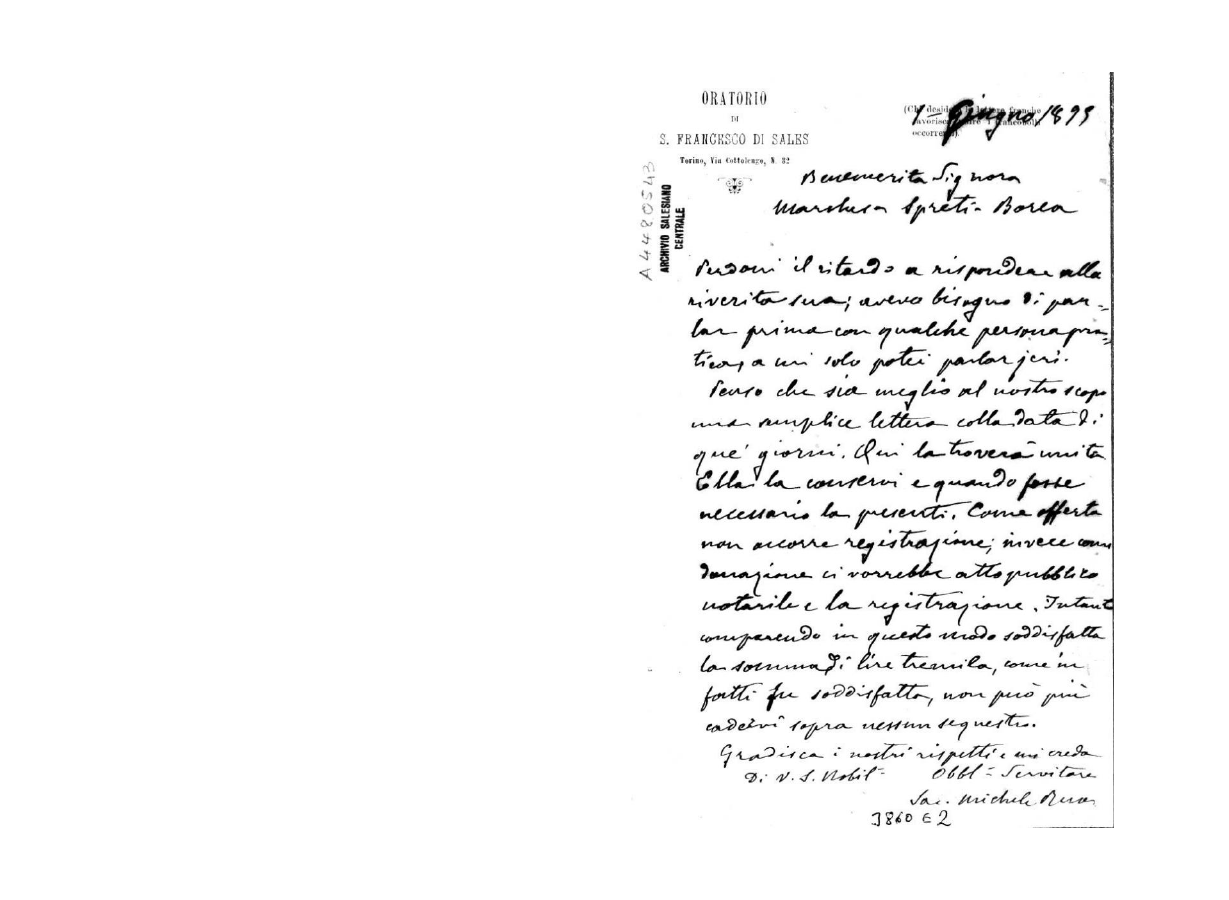 ORATORIO
DI
S. FRANCESCO DI SALES
Torino, Via Cottolengo, N. 32
(Chi desidera lettere franche
favorisca i francobolli
occorrenti).
1 - Giugno 1899
A4480543
ARCHIVIO SALESIANO
CENTRALE
Benemerita Signora
Marchesa Spreti-Borea
Perdoni il ritardo a rispondere alla
riverita sua; avevo bisogno di par=
lar prima con qualche persona pra=
tica, a cui solo potei parlar jeri.
Penso che sia meglio al nostro scopo
una semplice lettera colla data di
que' giorni. Qui la troverà unita
Ella la conservi e quando fosse
necessario la presenti. Come offerta
non occorre registrazione; invece come
donazione ci vorrebbe atto pubblico
notarile e la registrazione. Intant
comparendo in questo modo soddisfatta
la somma di lire tremila, come in
fatti fu soddisfatta, non può più
cadervi sopra nessun sequestro.
Gradisca i nostri rispetti e mi creda
Di V. S. Nobil- Obbl= Servitore
Sac. Michele Rua
3860 E 2